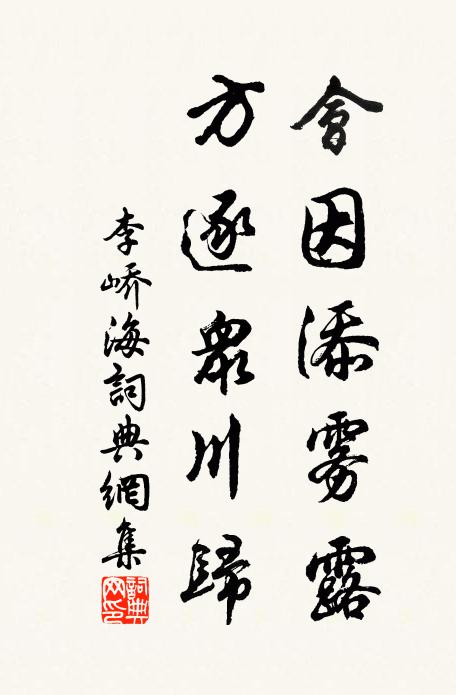 會因添雾露
方逐衆川歸
李峤海詞典網集
詞典
网印